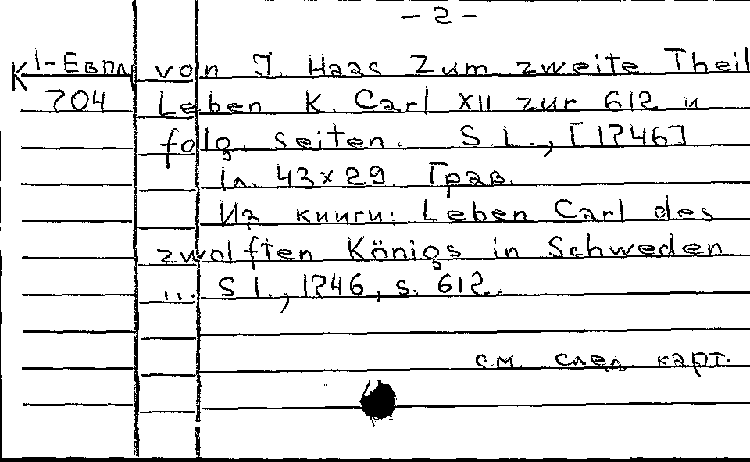 - 2 -
К 1-Евпл von J. Haas Zum zweite Theil
704 Leben K. Carl XII zur 612 u
folg. seiten. S. l., [1746]
1 л. 43 x 29. Грав.
Из книги: Leben Carl des
zwolften Königs in Schweden
... S. l., 1746, s. 612.
см. след карт.